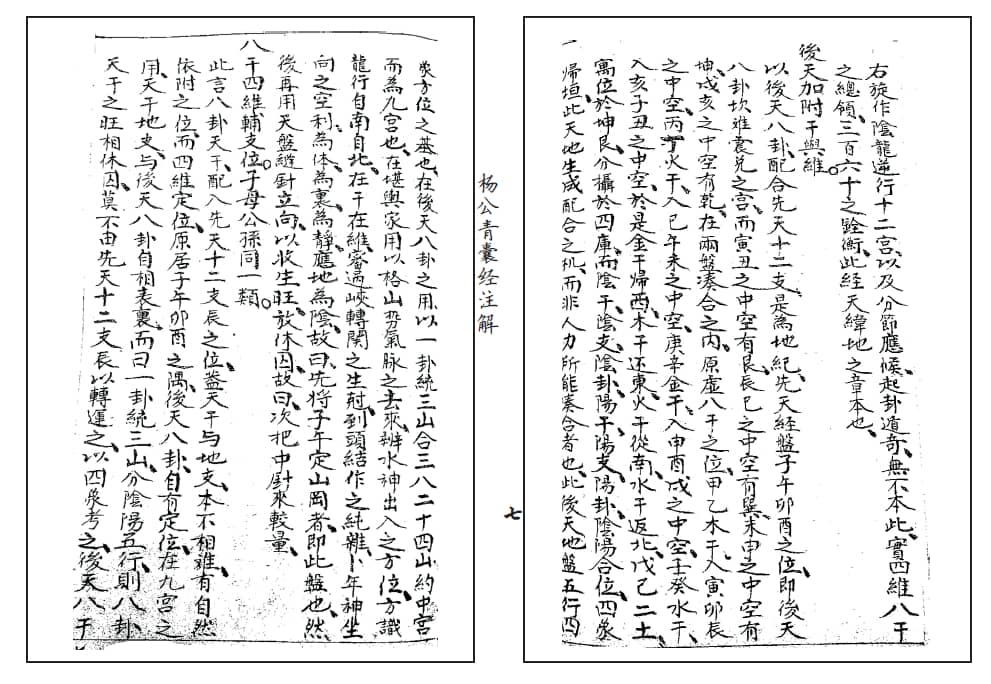 右旋作陰龍逆行十二宫以及分節應候起卦遁奇無不本此實四維八干
之總領三百六十之銓衡此経天緯地之章本也
後天加附干與維
以後天八卦配合先天十二支是為地紀先天経盤子午卯酉之位即後天
八卦坎離震兑之宫而寅丑之中空有艮辰巳之中空有巽未申之中空有
坤戌亥之中空有乾在兩盤湊合之内原虚八干之位甲乙木干入寅卯辰
之中空丙丁火干入巳午未之中空庚辛金干入申酉戌之中空壬癸水干
入亥子丑之中空於是金干帰酉木干还東火干從南水干返北戊己二土
寓位於坤艮分攝於四庫而陰干陰支陰卦陽干陽支陽卦陰陽合位四象
帰垣此天地生成配合之机而非人力所能奏合者也此後天地盤五行四
一
杨公青囊经注解
七
象方位之基也在後天八卦之用以一卦統三山合三八二十四山約中宫
而為九宫也在堪輿家用以格山势氣脉之去來辨水神出入之方位方識
龍行自南自北在干在維審過峡轉関之生尅到頭結作之純雜卜年神坐
向之空利為体為裏為靜應地為陰故曰先將子午定山岡者即此盤也然
後再用天盤縫針立向以收生旺放休囚故曰次把中針來較量
八干四維輔支位子母公孫同一類
此言八卦天干配入先天十二支辰之位蓋天干与地支本不相離有自然
依附之位而四維定位原居子午卯酉之隅後天八卦自有定位在九宫之
用天干地支与後天八卦自相表裏而曰一卦統三山分陰陽五行則八卦
天干之旺相休囚莫不由先天十二支辰以轉運之以四象考之後天八干